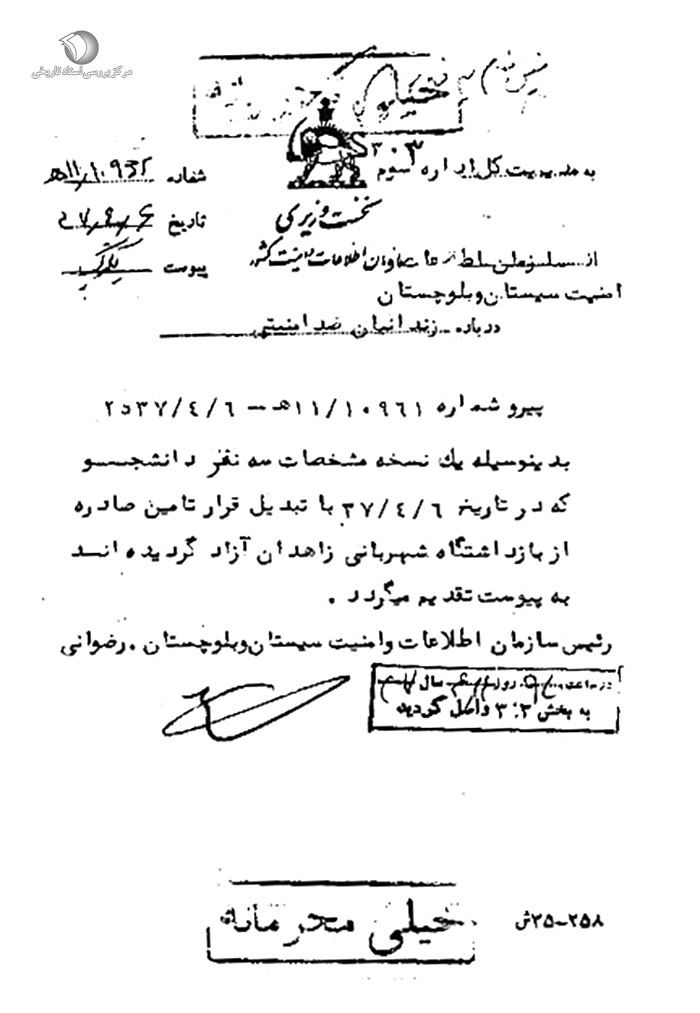 مرکز بررسی اسناد تاریخی
خیلی محرمانه
به مدیریت کل اداره سوم ۳۰۳
شماره
تاریخ
پیوست
نخست وزیری
از سازمان اطلاعات و امنیت کشور
امنیت سیستان و بلوچستان
درباره زندانیان ضد امنیتی
پیرو شماره ۱۰۹۶۱/۱۱ھ – ۲۵۳۷/٤/٦
بدینوسیله یك نسخه مشخصات سه نفر دانشجـــو
که در تاریخ ۳۷/٤/٦ با تبدیل قرار تامین صادره
از بازداشتگاه شهربانی زاهدان آزاد گردیده انـد
به پیوست تقدیم میگردد .
رئیس سازمان اطلاعات وامنیت سیستان وبلوچستان . رضوانی
به بخش ۳۰۳ واصل گردید
خیلی محرمانه
۲۵۸-۲۵ش